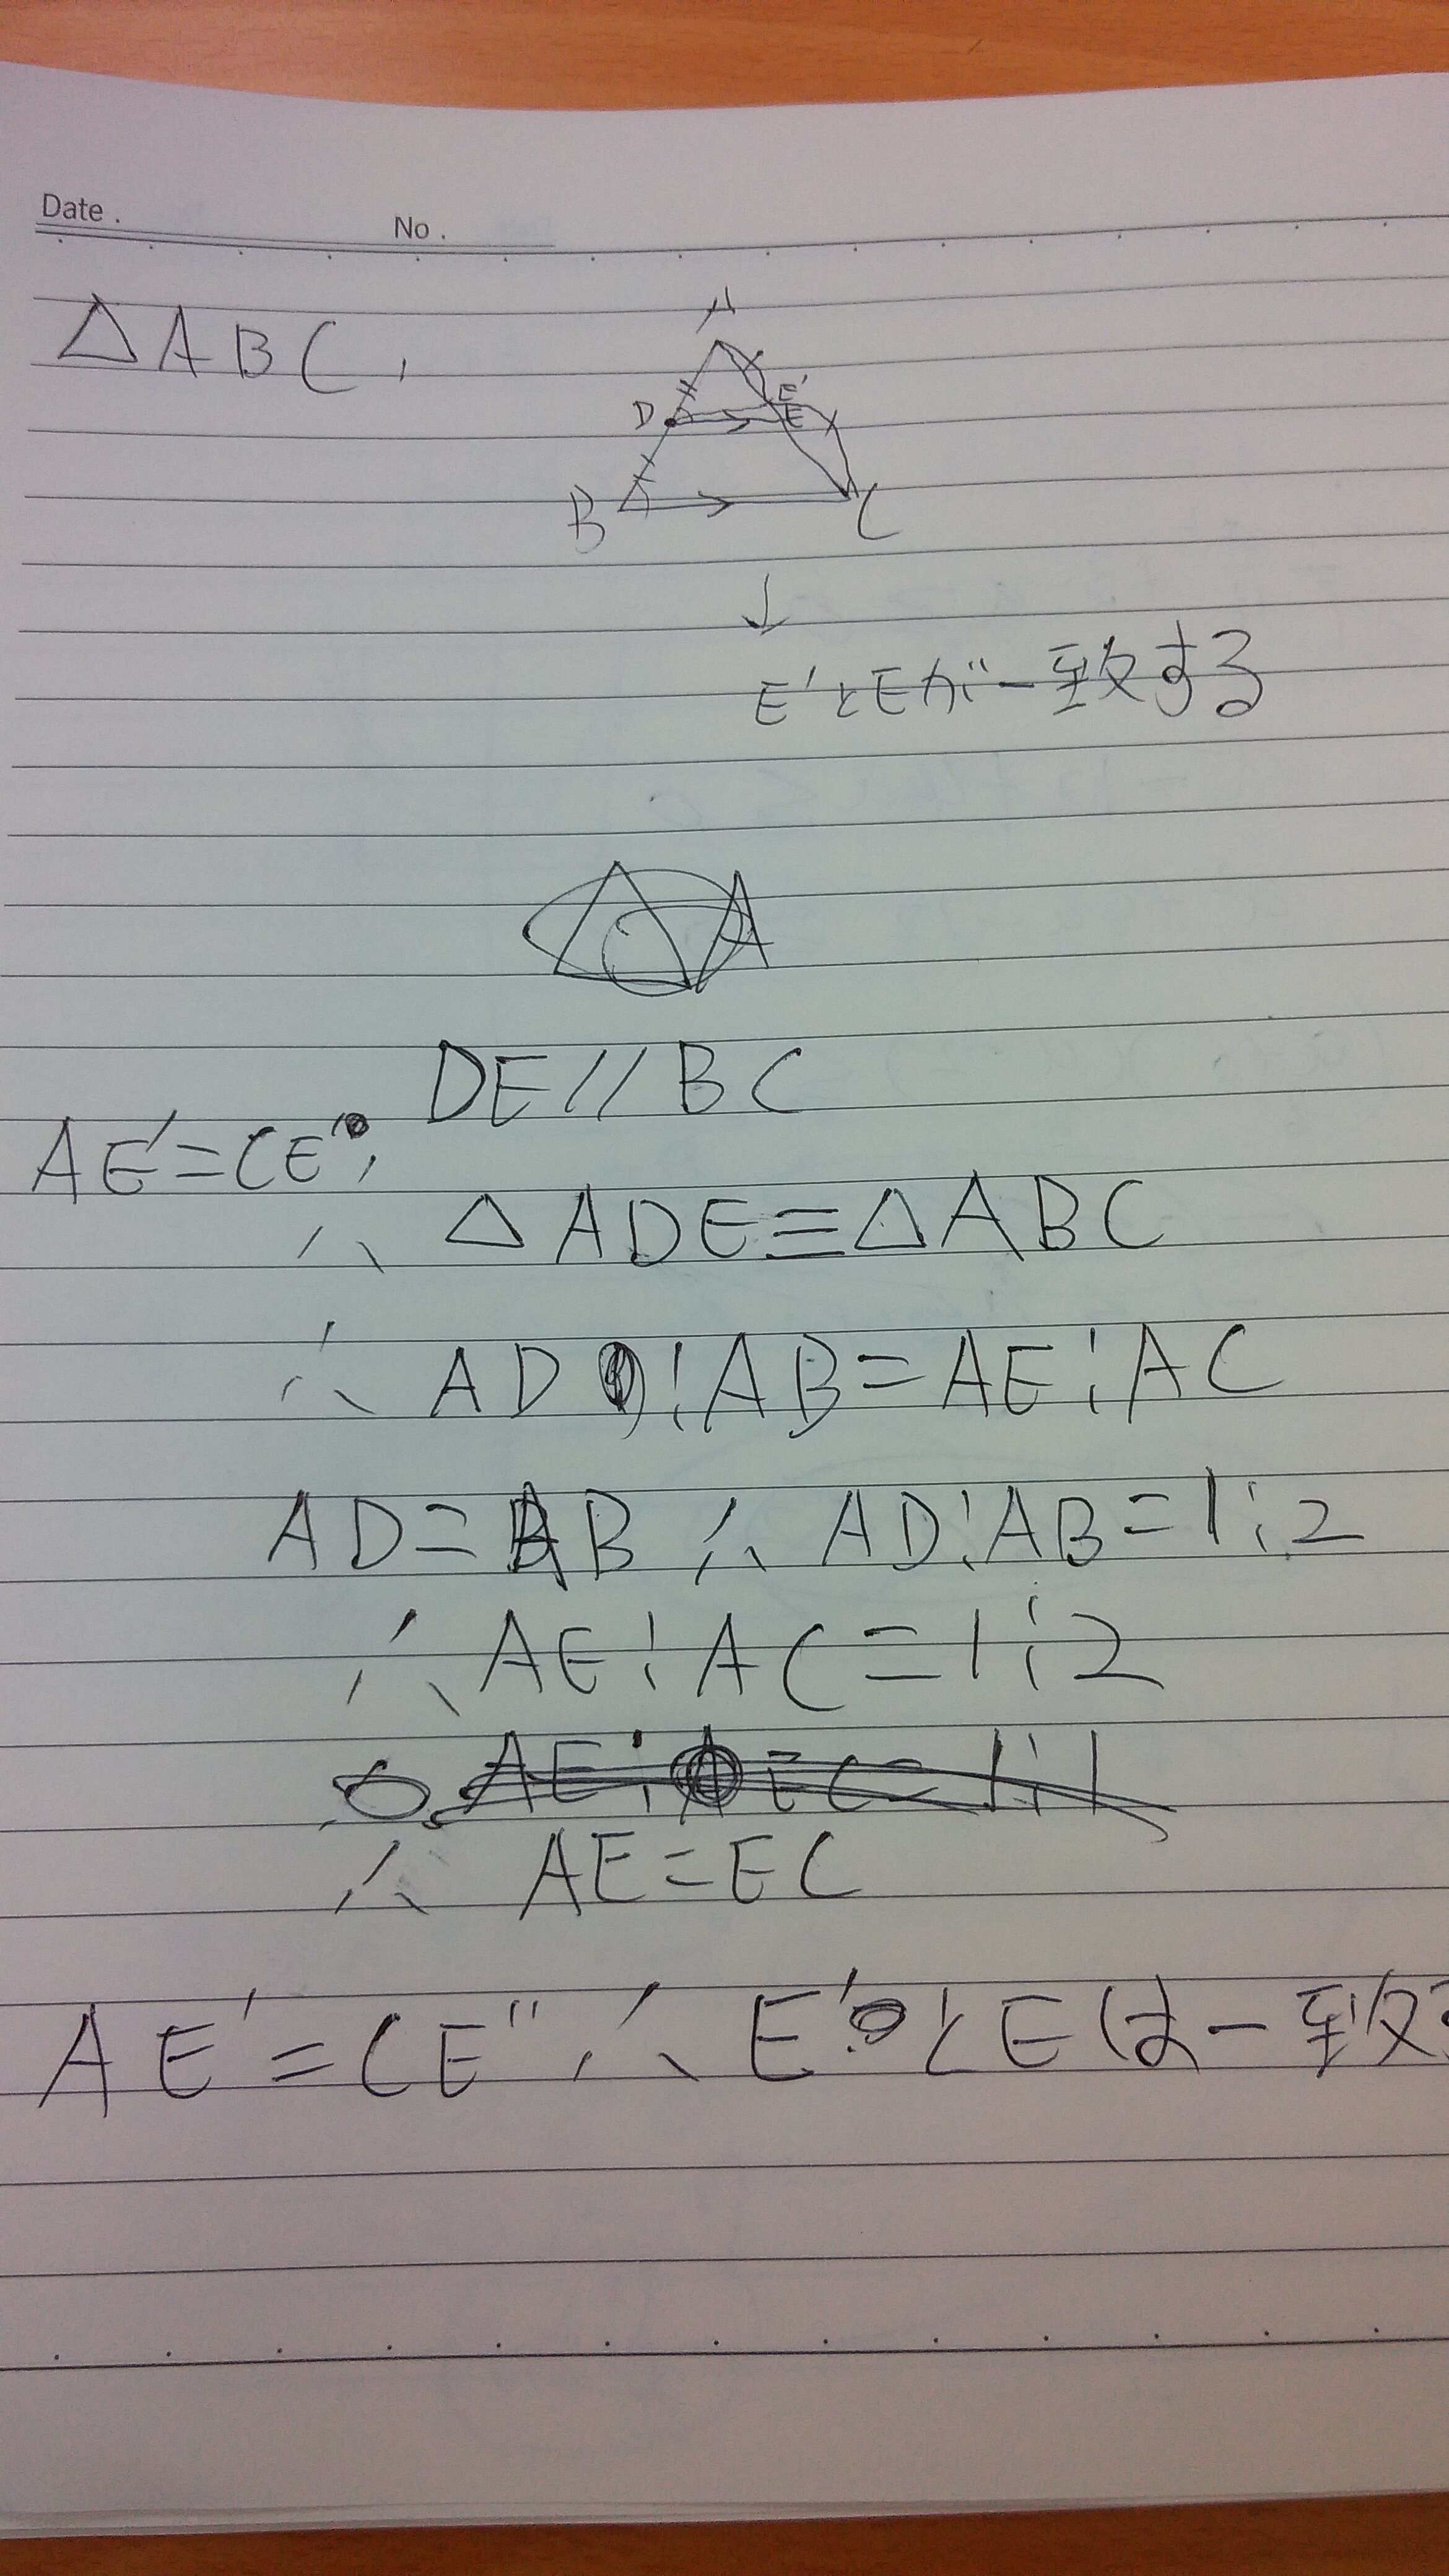 Date .
No .
△ABC,
A
D
E'
E
B
C
↓
E'とEが一致する
DE//BC
AE'=CE',
∴ △ADE≡△ABC
∴ AD:AB=AE:AC
AD=AB ∴ AD:AB=1:2
∴ AE:AC=1:2
AE:EC=1:1
∴ AE=EC
AE'=CE" ∴ E'とEは一致